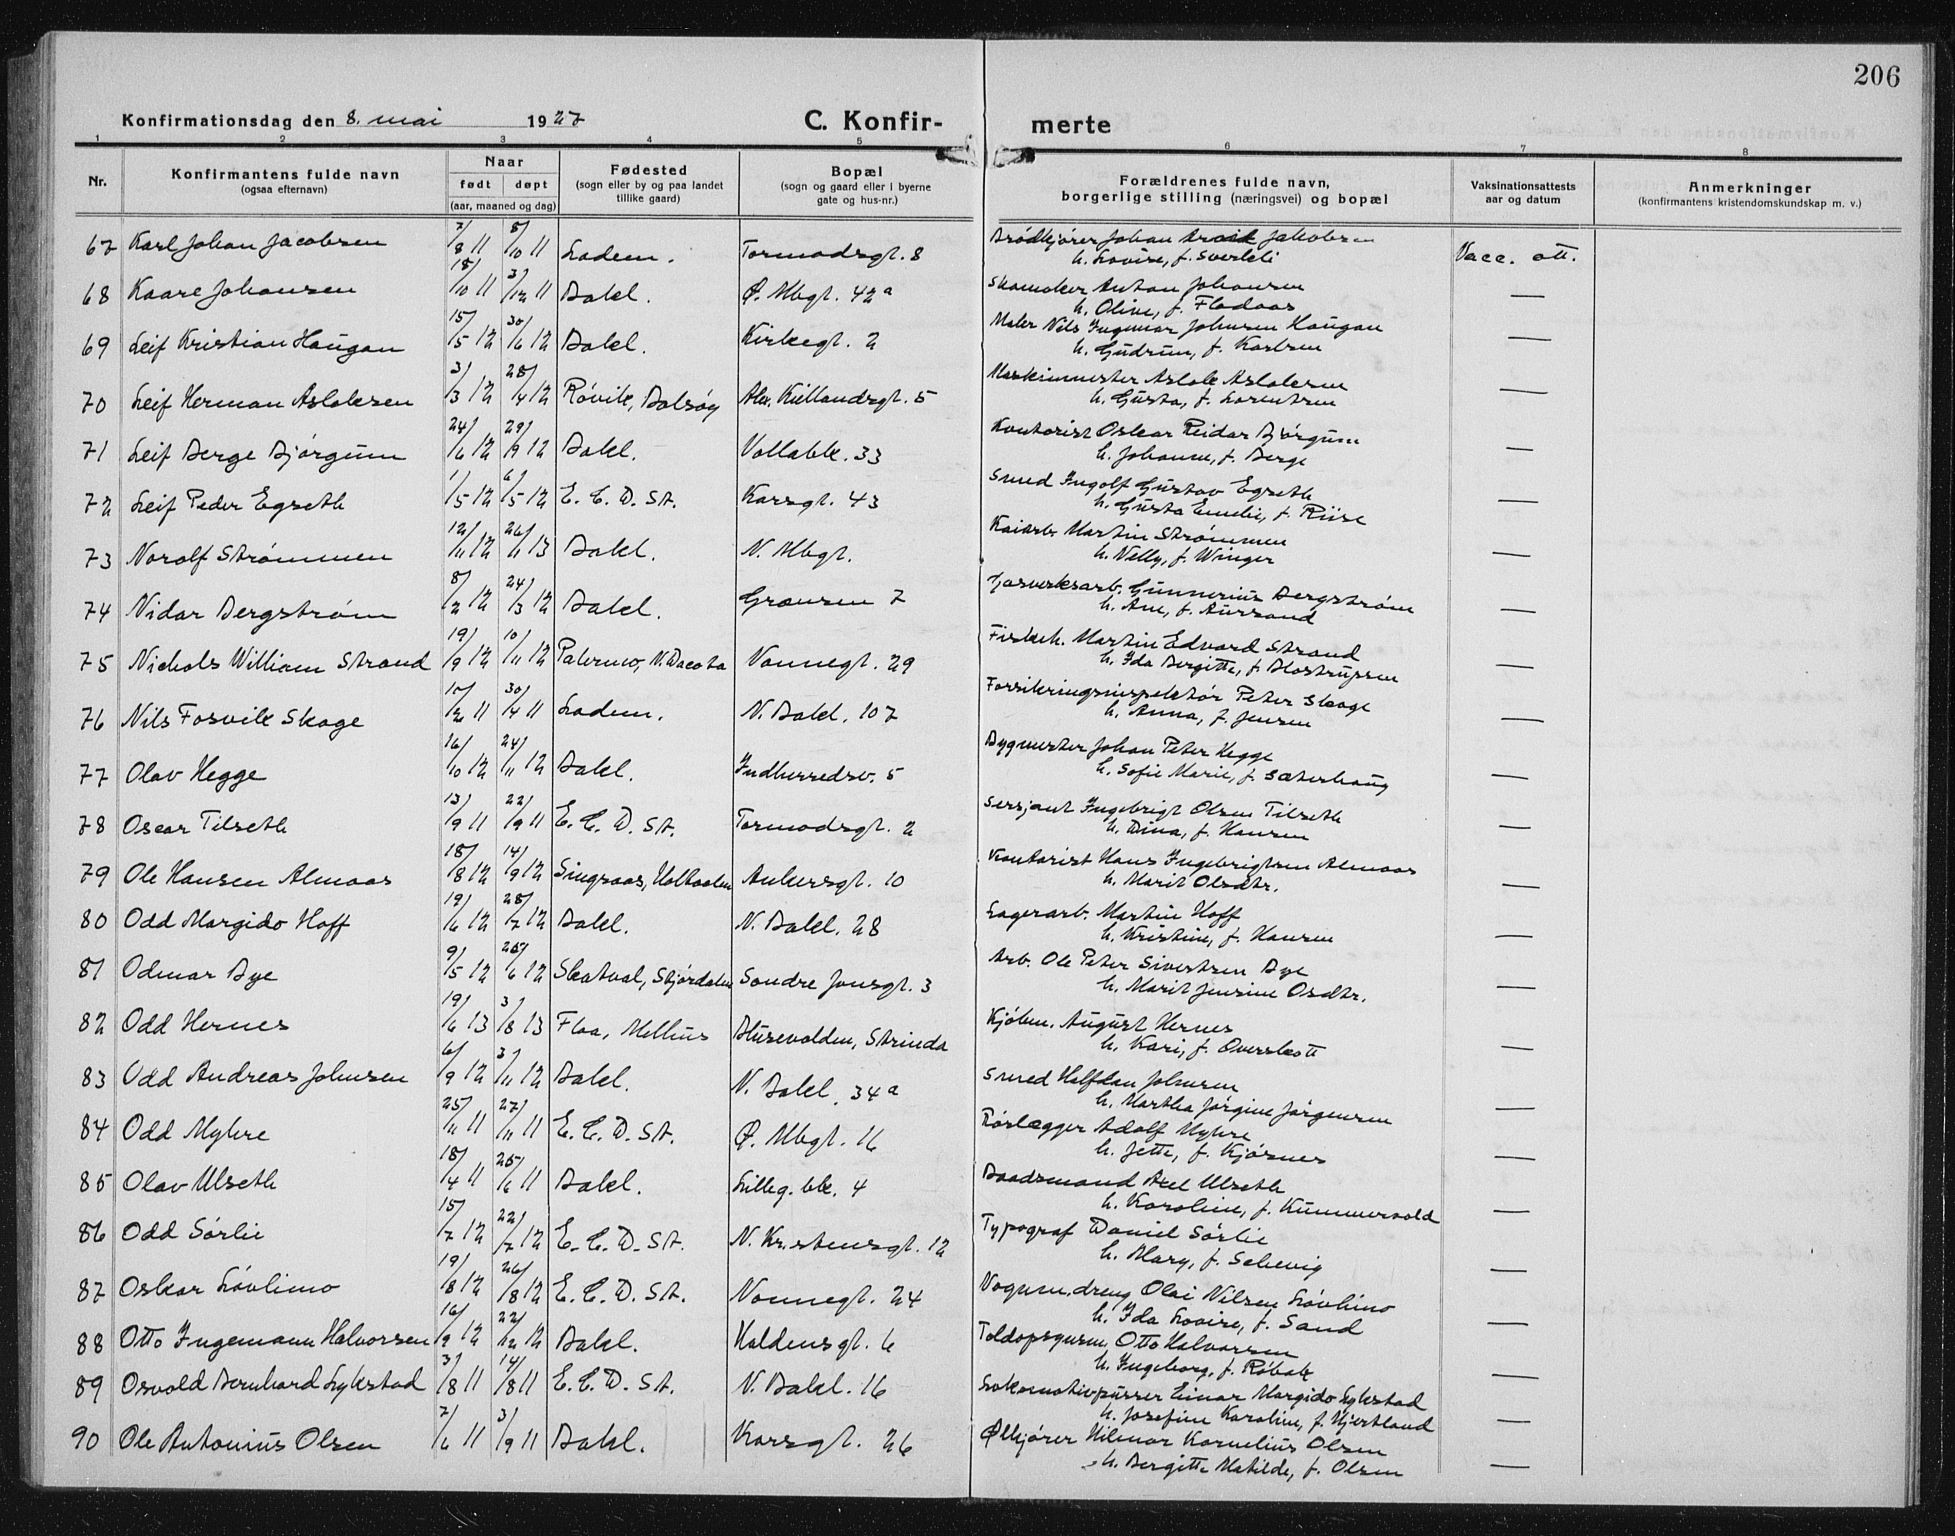 206
Konfirmationsdag den 8. mai 1927
C. Konfirmerte
1 2 3 4 5 6 7 8
Nr.
Konfirmantens fulde navn
(ogsaa efternavn)
Naar
født døpt
(aar, maaned og dag)
Fødested
(sogn eller by og paa landet
tillike gaard)
Bopæl
(sogn og gaard eller i byerne
gate og hus-nr.)
Forældrenes fulde navn,
borgerlige stilling (næringsvei) og bopæl
Vaksinationsattests
aar og datum
Anmerkninger
(konfirmantens kristendomskundskap m. v.)
67 Karl Johan Jacobsen 7/8 11 8/10 11 Ladem. Tormodsgt. 8 Brødkjører Johan Jakobsen Vacc. att.
h. Lovise, f.
68 Kaare Johansen 15/10 11 3/12 11 Bakl. Ø. Mbgt. 42a Skomaker Anton Johansen —
h. Olive, f. Flodaas
69 Leif Kristian Haugan 15/5 12 30/6 12 Bakl. Kirkegt. 2 Maler Nils Ingemar Johnsen Haugan —
h. Gudrun, f. Karlsen
70 Leif Herman Aslaksen 3/3 12 28/4 12 Røvik, Bolsøy Alex. Kiellandsgt. 5 Maskinmester Aslak Aslaksen —
h. Gusta, f. Lorentsen
71 Leif Berge Bjørgum 24/6 12 29/9 12 Bakl. Vollabk. 33 Kontorist Oskar Reidar Bjørgum —
h. Johanne, f. Berge
72 Leif Peder Egseth 1/5 12 6/5 12 E. C. D. St. Korsgt. 43 Smed Ingolf Gustav Egseth —
h. Gusta Emelie, f. Riise
73 Norolf Strømmen 12/11 12 26/11 13 Bakl. N. Mbgt. Kaiarb. Martin Strømmen —
h. Nelly, f. Winger
74 Nidar Bergstrøm 8/2 12 24/3 12 Bakl. Grænsen 7 Gasverksarb. Gunnerius Bergstrøm —
h. Ane, f. Aursand
75 Nichols William Strand 19/9 12 10/11 12 Palermo, N. Dacota Nonnegt. 29 Fiskeh. Martin Edvard Strand —
h. Ida Bergitte, f. Blostrupsen
76 Nils Fosvik Skage 10/2 11 30/4 11 Ladem. N. Bakl. 107 Forsikringsinspektør Peter Skage —
h. Anna, f. Jensen
77 Olav Hegge 16/10 12 24/11 12 Bakl. Indherredsv. 5 Bygmester Johan Peter Hegge —
h. Sofie Marie, f. Sæterhaug
78 Oscar Tilseth 13/9 11 22/9 11 E. C. D. St. Tormodsgt. 2 Sersjant Ingebrigt Olsen Tilseth —
h. Dina, f. Hansen
79 Ole Hansen Almaas 18/8 12 14/9 12 Singsaas, Holtaalen Ankersgt. 10 Kontorist Hans Ingebrigtsen Almaas —
h. Marit Olsdtr.
80 Odd Margido Hoff 19/6 12 28/7 12 Bakl. N. Bakl. 28 Lagerarb. Martin Hoff —
h. Kristine, f. Hansen
81 Odmar Bye 9/5 12 25/6 12 Skatval, Stjørdalen Sondre Jonsgt. 3 Arb. Ole Peter Sivertsen Bye —
h. Marit Jensine Osdtr.
82 Odd Hernes 19/6 13 3/8 13 Flaa, Melhus Blusevolden, Strinda Kjøbm. August Hernes —
h. Kari, f. Overskott
83 Odd Andreas Johnsen 6/9 12 3/11 12 Bakl. N. Bakl. 34a Smed Halfdan Johnsen —
h. Martha Jørgine Jørgensen
84 Odd Myhre 25/11 11 27/11 11 E. C. D. St. Ø. Mbgt. 16 Rørlægger Adolf Myhre —
h. Jette, f. Kjøsnes
85 Olav Ulseth 18/4 11 25/6 11 Bakl. Lilleg. bk. 4 Baadsmand Axel Ulseth —
h. Karoline, f. Kummervold
86 Odd Sørlie 15/7 12 22/7 12 E. C. D. St. N. Kristensgt. 12 Typograf Daniel Sørlie —
h. Mary, f. Selsevig
87 Oskar Løvlimo 19/8 12 26/8 12 E. C. D. St. Nonnegt. 24 Vognm. dreng Olai Nilsen Løvlimo —
h. Ida Lovise, f. Sand
88 Otto Ingemann Halvorsen 16/9 12 22/12 12 Bakl. Haldensgt. 6 Toldopsynsm. Otto Halvorsen —
h. Ingeborg, f. Røbek
89 Osvald Bernhard Lykstad 3/8 11 14/8 11 E. C. D. St. N. Bakl. 16 Lokomotivpusser Einar Margido Lykstad —
h. Josefine Karoline, f. Hjertland
90 Ole Antonius Olsen 7/6 11 3/9 11 Bakl. Korsgt. 26 Ølkjører Hilmar Kornelius Olsen —
h. Bergitte Matilde, f. Olsen